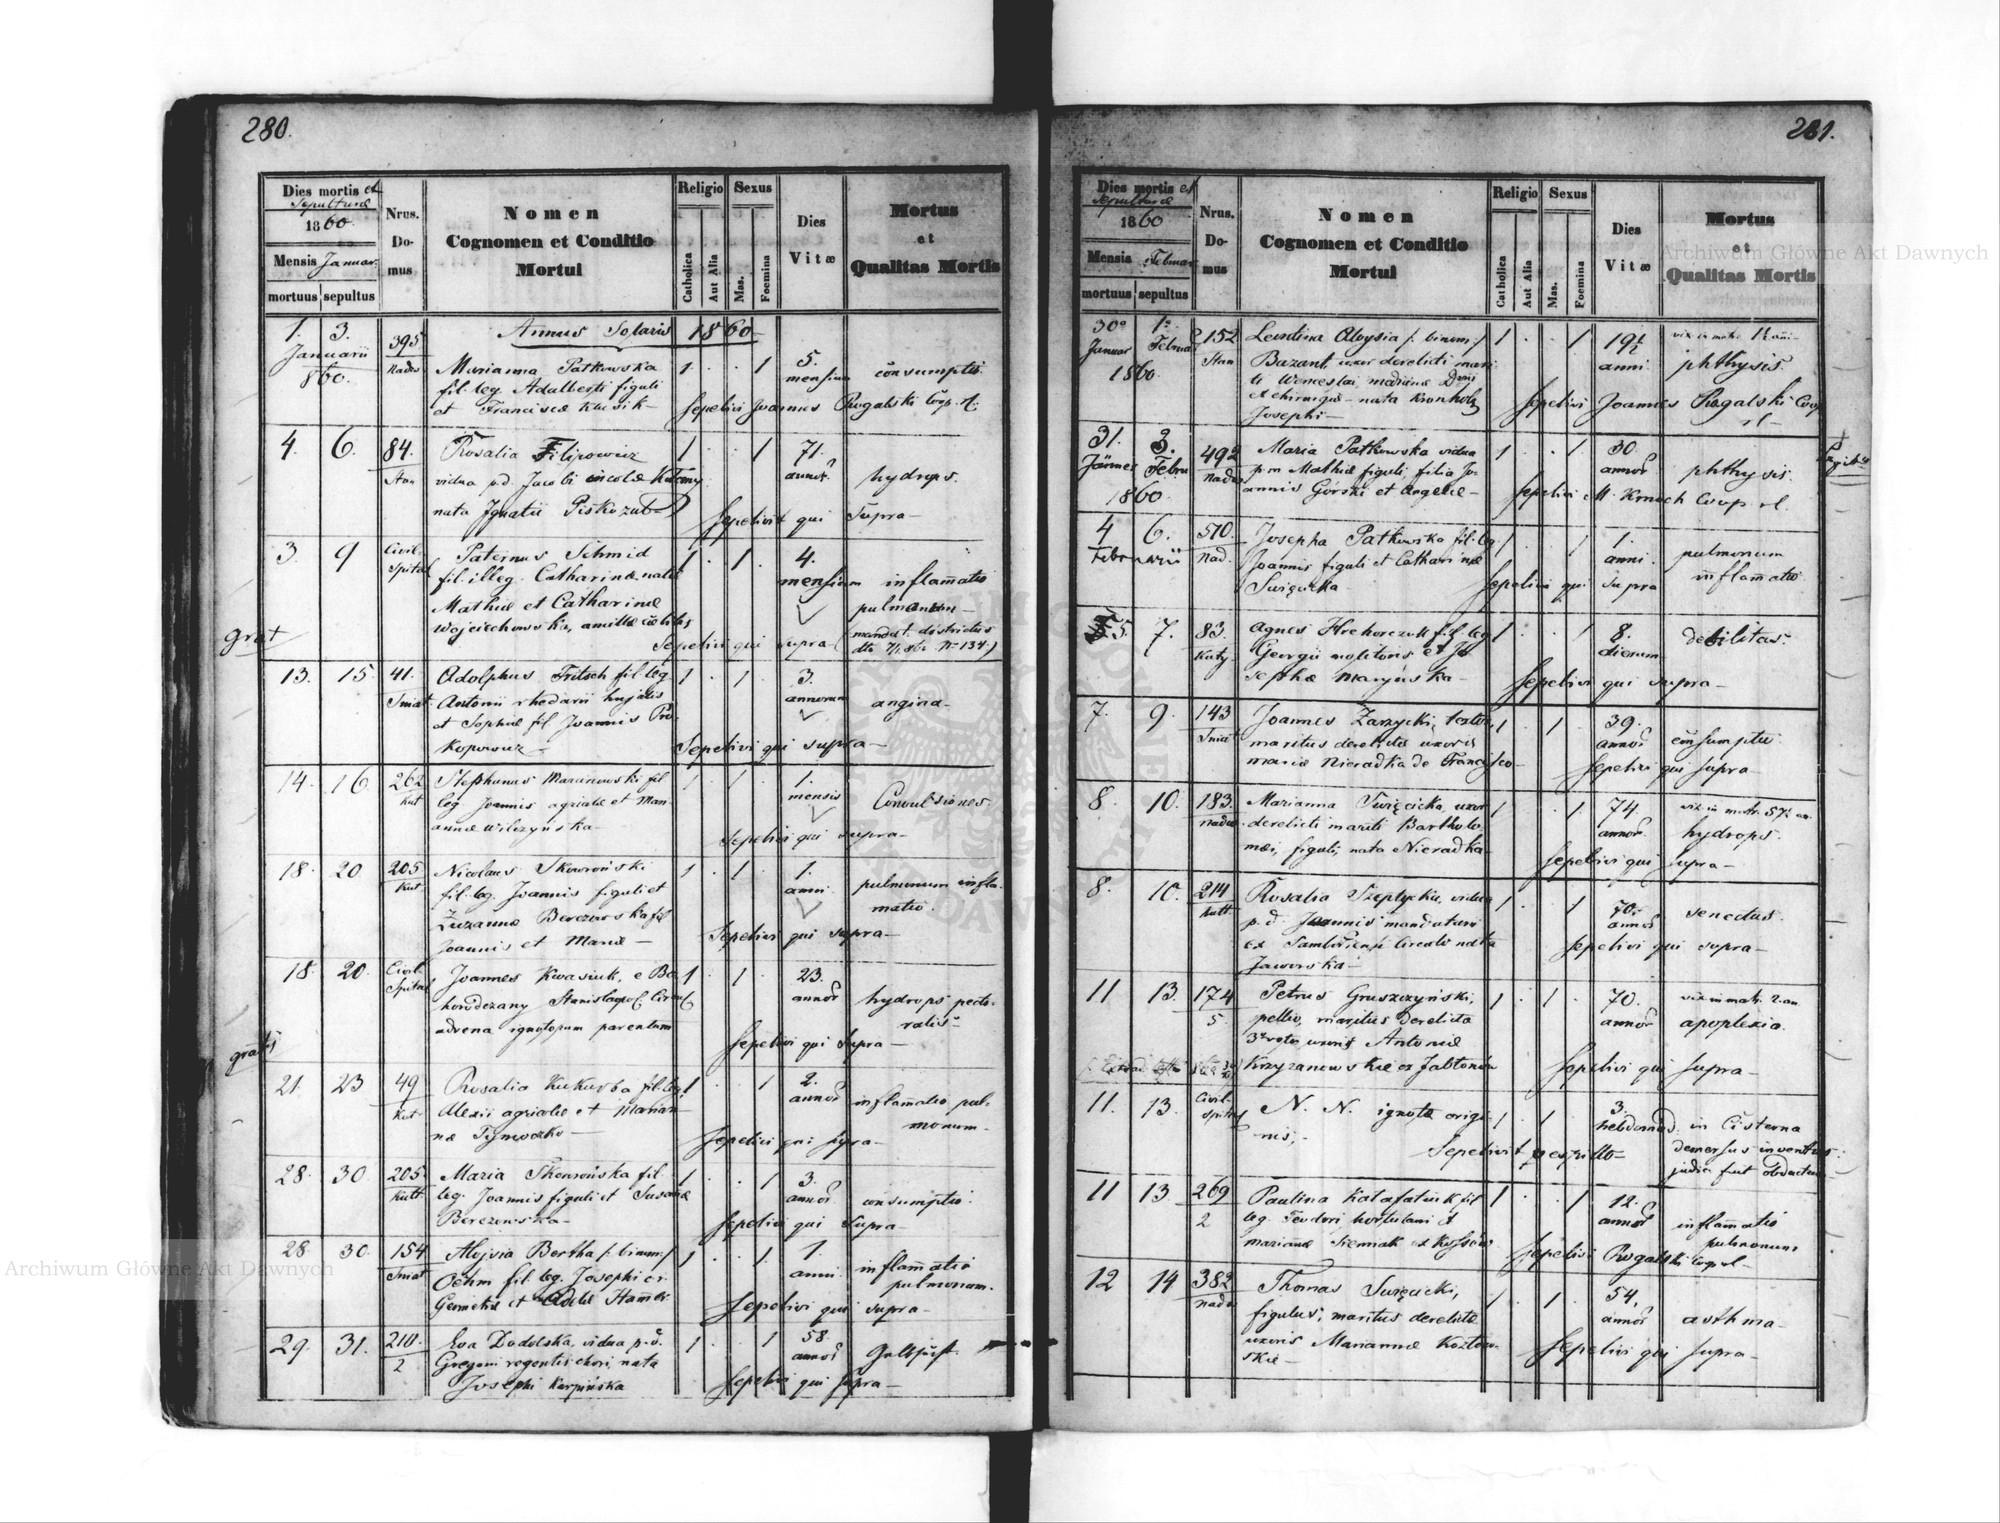 280.
Dies mortis et
Sepulturæ
1860.
Mensis Januar.
mortuus sepultus
Nrus.
Do-
mus
Nomen
Cognomen et Conditio
Mortui
Religio
Catholica
Aut Alia
Sexus
Mas.
Foemina
Dies
Vitæ
Mortus
et
Qualitas Mortis
Annus Solaris 1860
1. 3. 395
Januarii
1860.
Marianna Patkowska 1 . . 1 5.
fil. leg. Adalberti figuli mensium consumptio
et Franciscæ
Sepelivi Joannes Rogalski Coop. rl.
4. 6. 84. Rosalia Filipowicz 1 . . 1 71.
vidua p.d. Jacobi incolæ annor. hydrops.
nata Ignatii
Sepelivit qui Supra
3 9 Civil. Paternus Schmid 1 . 1 . 4.
Spital fil. illeg. Catharinæ natæ mensium inflamatio
Mathiæ et Catharinæ pulmonum
Wojciechowska,
Sepelivi qui supra (mandat. districtus
grat
13. 15. 41. Adolphus Fritsch fil. leg. 1 . 1 . 3.
Sniat. Antonii rhedarii hujatis annorum angina
et Sophiæ fil. Joannis Pro-
kopowicz
Sepelivi qui supra
14. 16. 262 Stephanus Maranowski fil. 1 . 1 . 1.
Kut leg. Joannis agricolæ et Mari- mensis Convulsiones
annæ Wilczyńska
Sepelivi qui supra
18. 20. 205 Nicolaus Skowroński 1 . 1 . 1.
Kut fil. leg. Joannis figuli et anni pulmonum infla-
Zuzannæ Berezowska fil. matio.
Joannis et Mariæ
Sepelivi qui supra
18. 20. Civil. Joannes Kwasiuk, e Bo- 1 . 1 . 23.
Spital horodczany Stanislapol. Circul. annor. hydrops pecto-
advena ignotorum parentum ralis
Sepelivi qui Supra
gratis
21. 23 49 Rosalia Kukurba fil. leg. 1 . . 1 2.
Kut Alexii agricolæ et Marian- annor. inflamatio pul-
næ monum
Sepelivi qui supra
28. 30. 205. Maria Skowrońska fil. 1 . . 1 3.
Kutt. leg. Joannis figuli et Susannæ annor. consumptio
Berezowska
Sepelivi qui Supra
28. 30. 154 Aloysia Bertha /: binom:/ 1 . . 1 1.
Sniat Oehm fil. leg. Josephi anni inflamatio
Geometræ et Adelæ pulmonum.
Sepelivi qui supra
29. 31. 210. Eva Dodolska, vidua p.d. 1 . . 1 58.
2 Gregorii regentis chori, nata annor.
Josephi Karpińska
Sepelivi qui supra
281.
Dies mortis et
Sepulturæ
1860
Mensis Februar
mortuus sepultus
Nrus.
Do-
mus
Nomen
Cognomen et Conditio
Mortui
Religio
Catholica
Aut Alia
Sexus
Mas.
Foemina
Dies
Vitæ
Mortus
et
Qualitas Mortis
30° 1° 152 Leontina Aloysia /: binom:/ 1 . . 1 19½
Januar Februar Bazant uxor derelicti mari- anni phthysis.
1860. ti Wenceslai, medicinæ
et chirurgiæ nata Kronholz
Josephi
Sepelivi Joannes Rogalski Coop
rl
31. 3. 492 Maria Patkowska vidua 1 . . 1 30.
Jännes Febru p.m. Mathiæ figuli, filia Jo- annor. phthysis.
1860 annis Górski et Angelæ
Sepelivi M. Kmoch Coop. rl.
4 6. 510. Josepha Patkowska fil. leg. 1 . . 1 1.
Februarii Nad. Joannis figuli et Catharinæ anni. pulmonum
Święcicka inflamatio
Sepelivi qui Supra
5. 7. 83. Agnes Hrehorczuk fil. leg. 1 . . 1 8. debilitas.
Kuty Georgii molitoris et Jo- dierum
sephæ
Sepelivi qui supra
7. 9. 143 Joannes Zarzycki, textor, 1 . 1 . 39.
Sniat maritus derelictæ uxoris annor. consumptio
Mariæ Nieradka de Francisco
Sepelivi qui supra
8. 10. 183. Marianna Święcicka, uxor 1 . . 1 74.
derelicti mariti Bartholo- annor. hydrops.
mæi, figuli, nata Nieradka
Sepelivi qui Supra
8. 10. 214 Rosalia Szeptycka, vidua 1 . . 1 70.
Kutt. p.d. Joannis mandatarii annor. senectus.
ex Samboriensi Circulo nata
Jaworska
Sepelivi qui supra
11 13. 174 Petrus Gruszczyński, 1 . 1 . 70. vix. in matr. 2. an.
5. pellio, maritus derelictæ annor. apoplexia.
uxoris Antoniæ
Krzyzanowskie ex Jabłonów
Sepelivi qui Supra
11. 13. Civil. N. N. ignotæ origi- 1 . 1 . 3.
Spital nis, hebdomad. in Cisterna
Sepelivit demersus inventus.
judic. fuit obductum
11 13. 269 Paulina Katafatiuk fil. 1 . . 1 12.
2 leg. Teodori hortulani et annor. inflamatio
Mariannæ Siemiak ex Kossów pulmonum
Sepelivi Rogalski Coop rl
12 14 382 Thomas Święcicki, 1 . 1 . 54.
figulus, maritus derelictæ annor. asthma
uxoris Mariannæ Kozłow-
skie
Sepelivi qui Supra
Archiwum Główne Akt Dawnych
Archiwum Główne Akt Dawnych